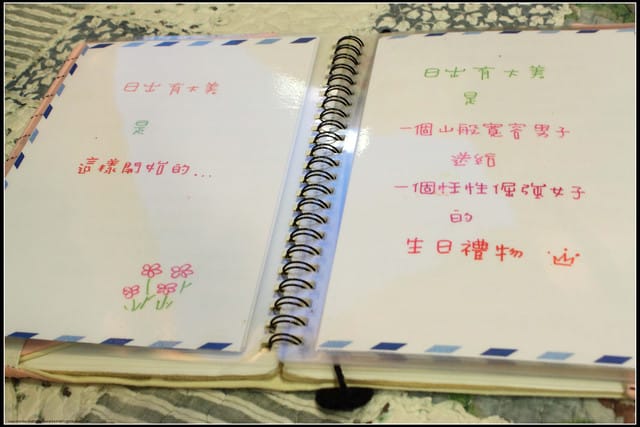 日出有大美
是
這樣開始的...
日出有大美
是
一個山般寬容男子
送給
一個任性倔強女子
的
生日禮物